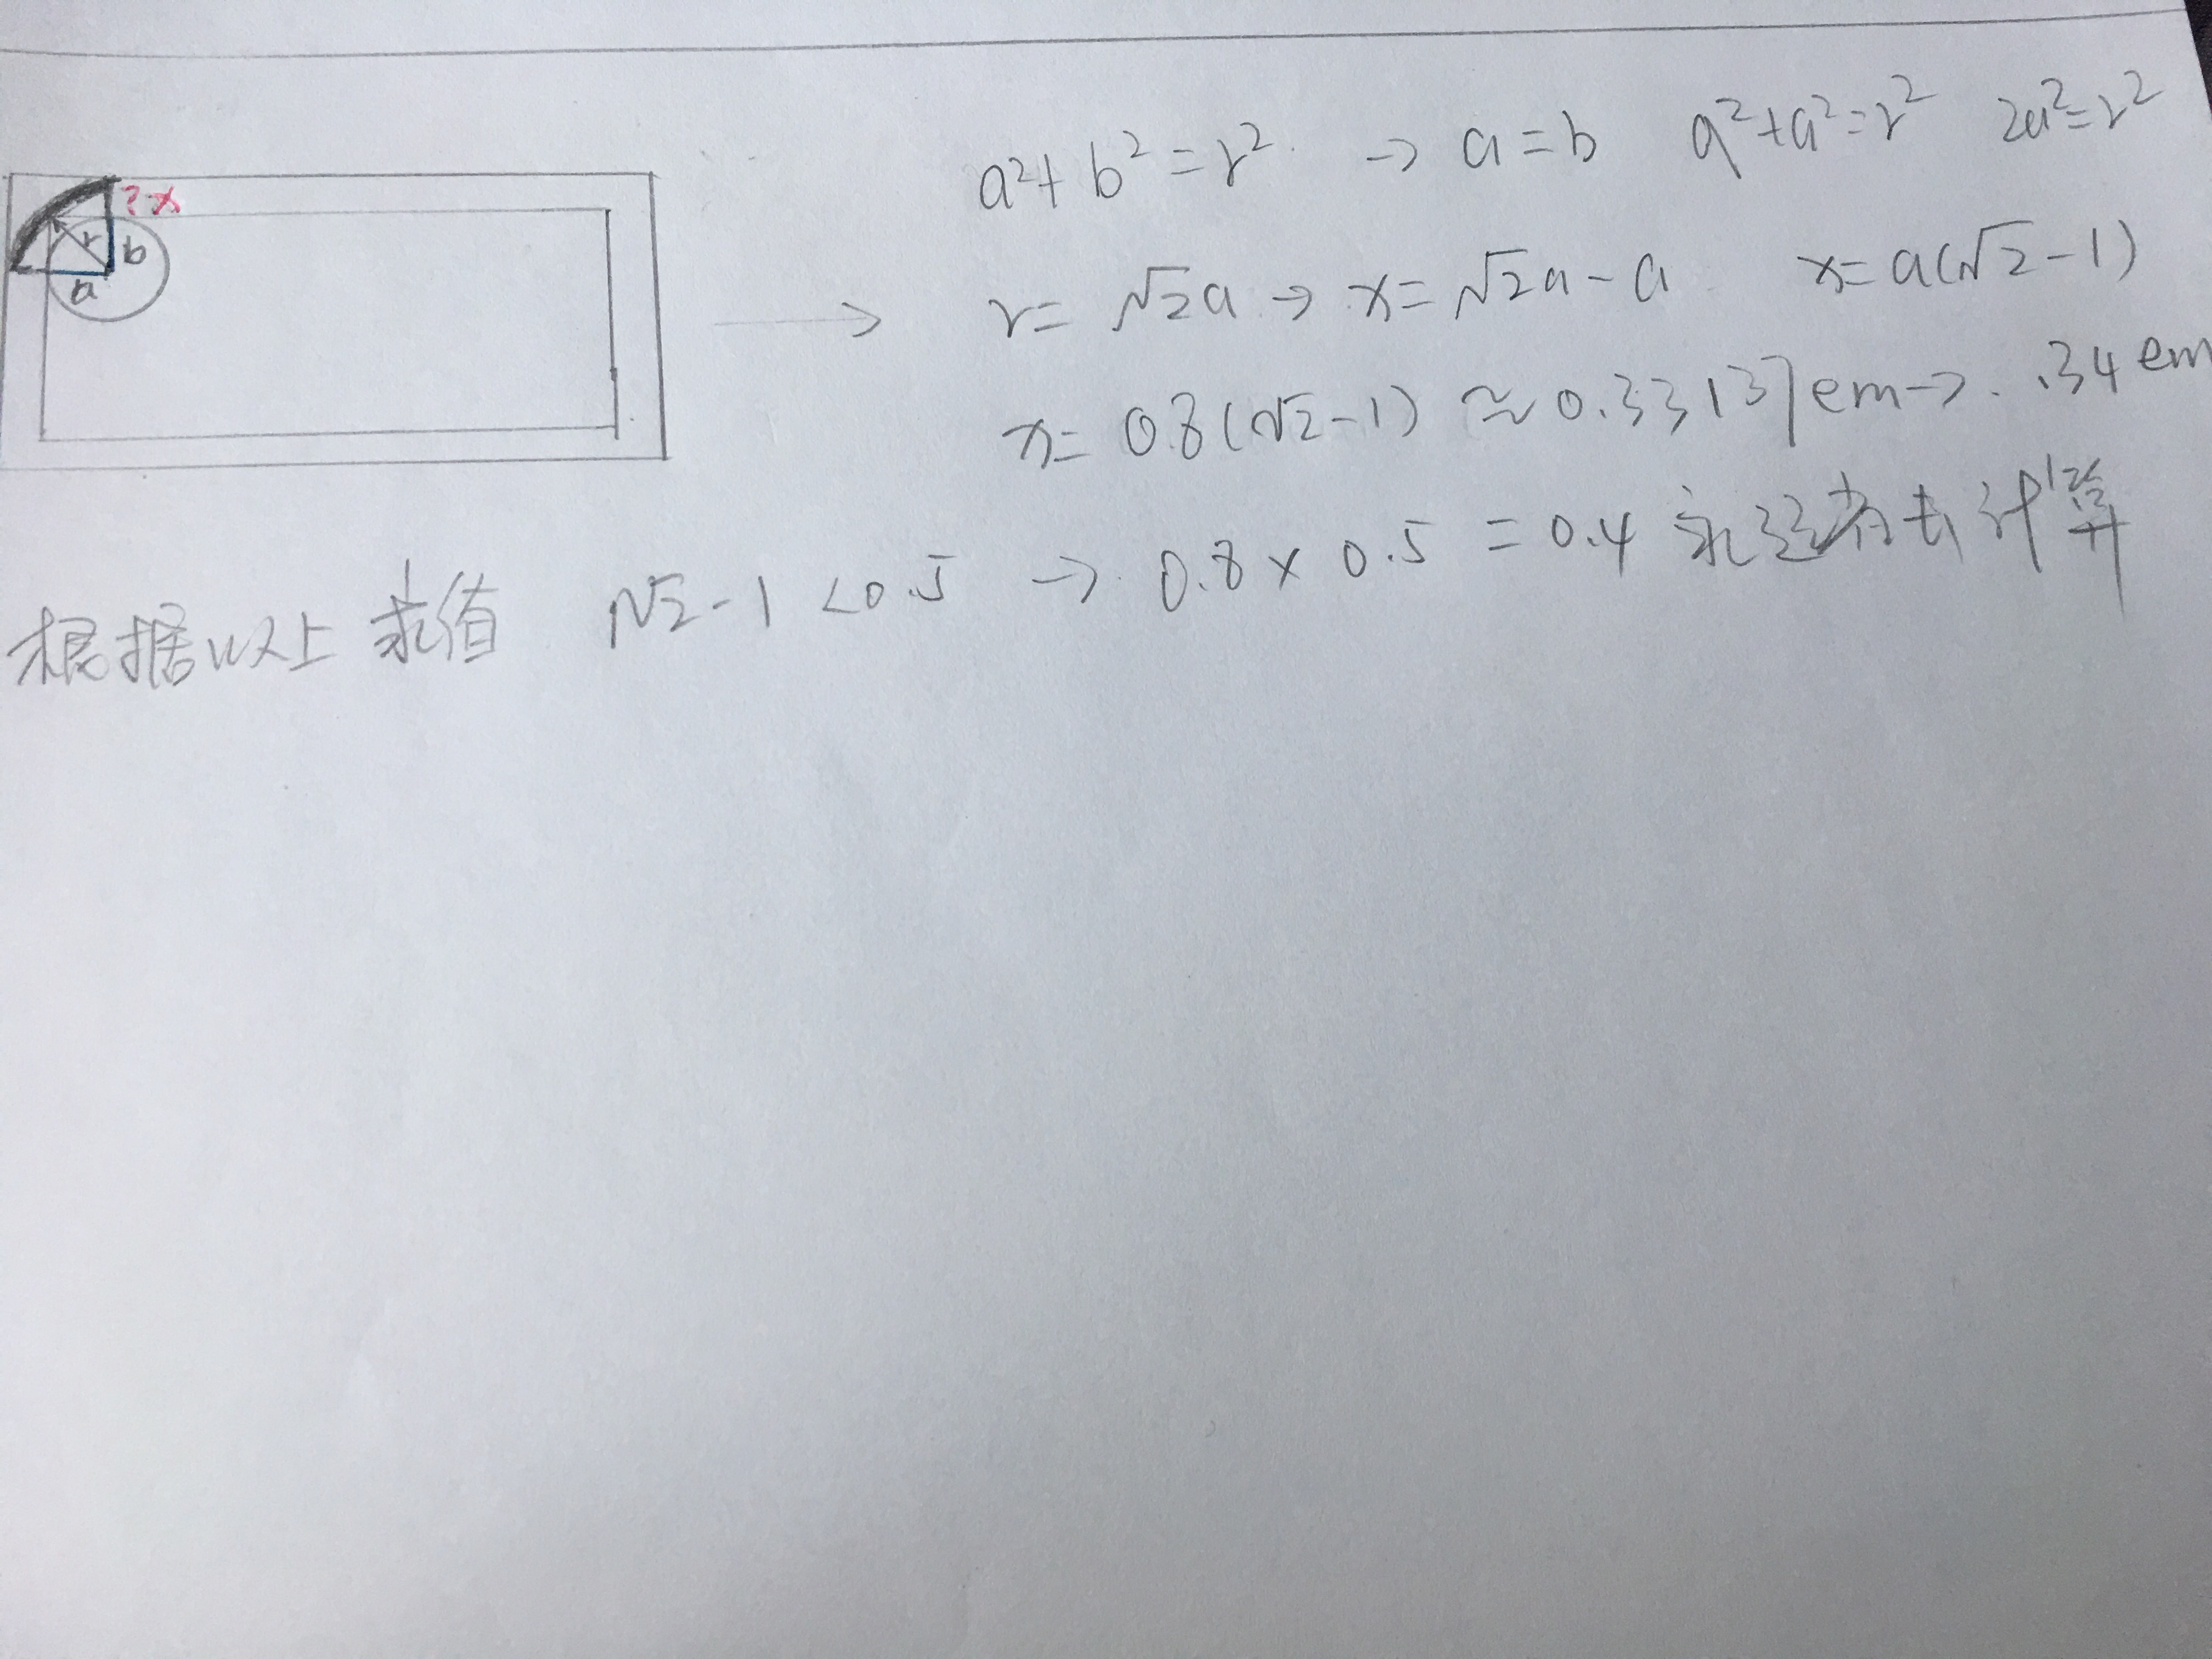 ?x
r b
a
a²+b²=r² → a=b a²+a²=r² 2a²=r²
r=√2a → x=√2a-a x=a(√2-1)
x=0.8(√2-1)≈0.33137em→.34em
根据以上求值 √2-1<0.5 → 0.8×0.5=0.4 来计算